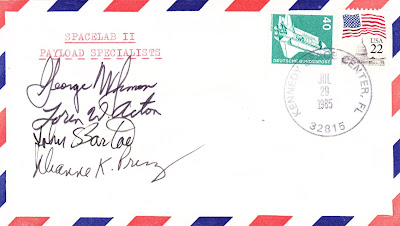 SPACELAB II
PAYLOAD SPECIALISTS
George Simon
Loren W. Acton
Dianne K. Prinz
40
DEUTSCHE BUNDESPOST
USA
22
KENNEDY SPACE CENTER, FL
JUL
29
1985
32815